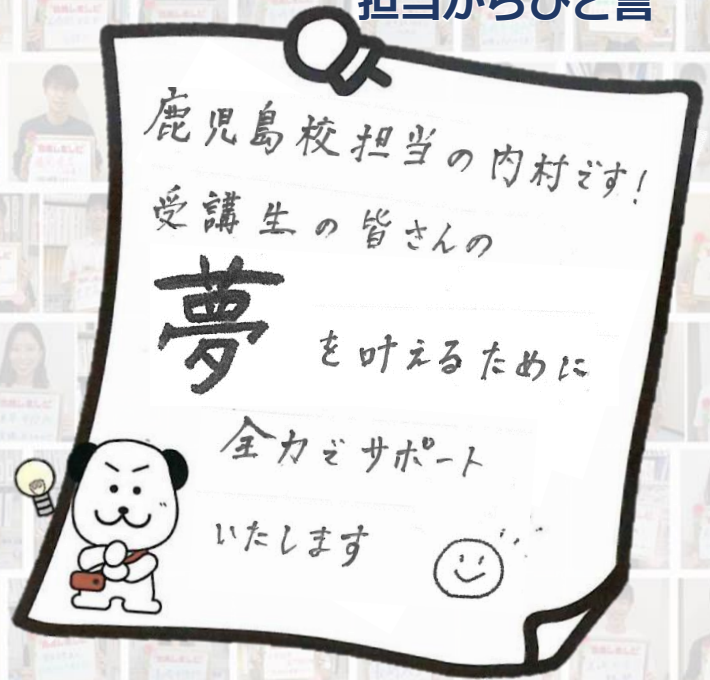 担当からひと言
鹿児島校担当の内村です!
受講生の皆さんの
夢を叶えるために
全力でサポート
いたします